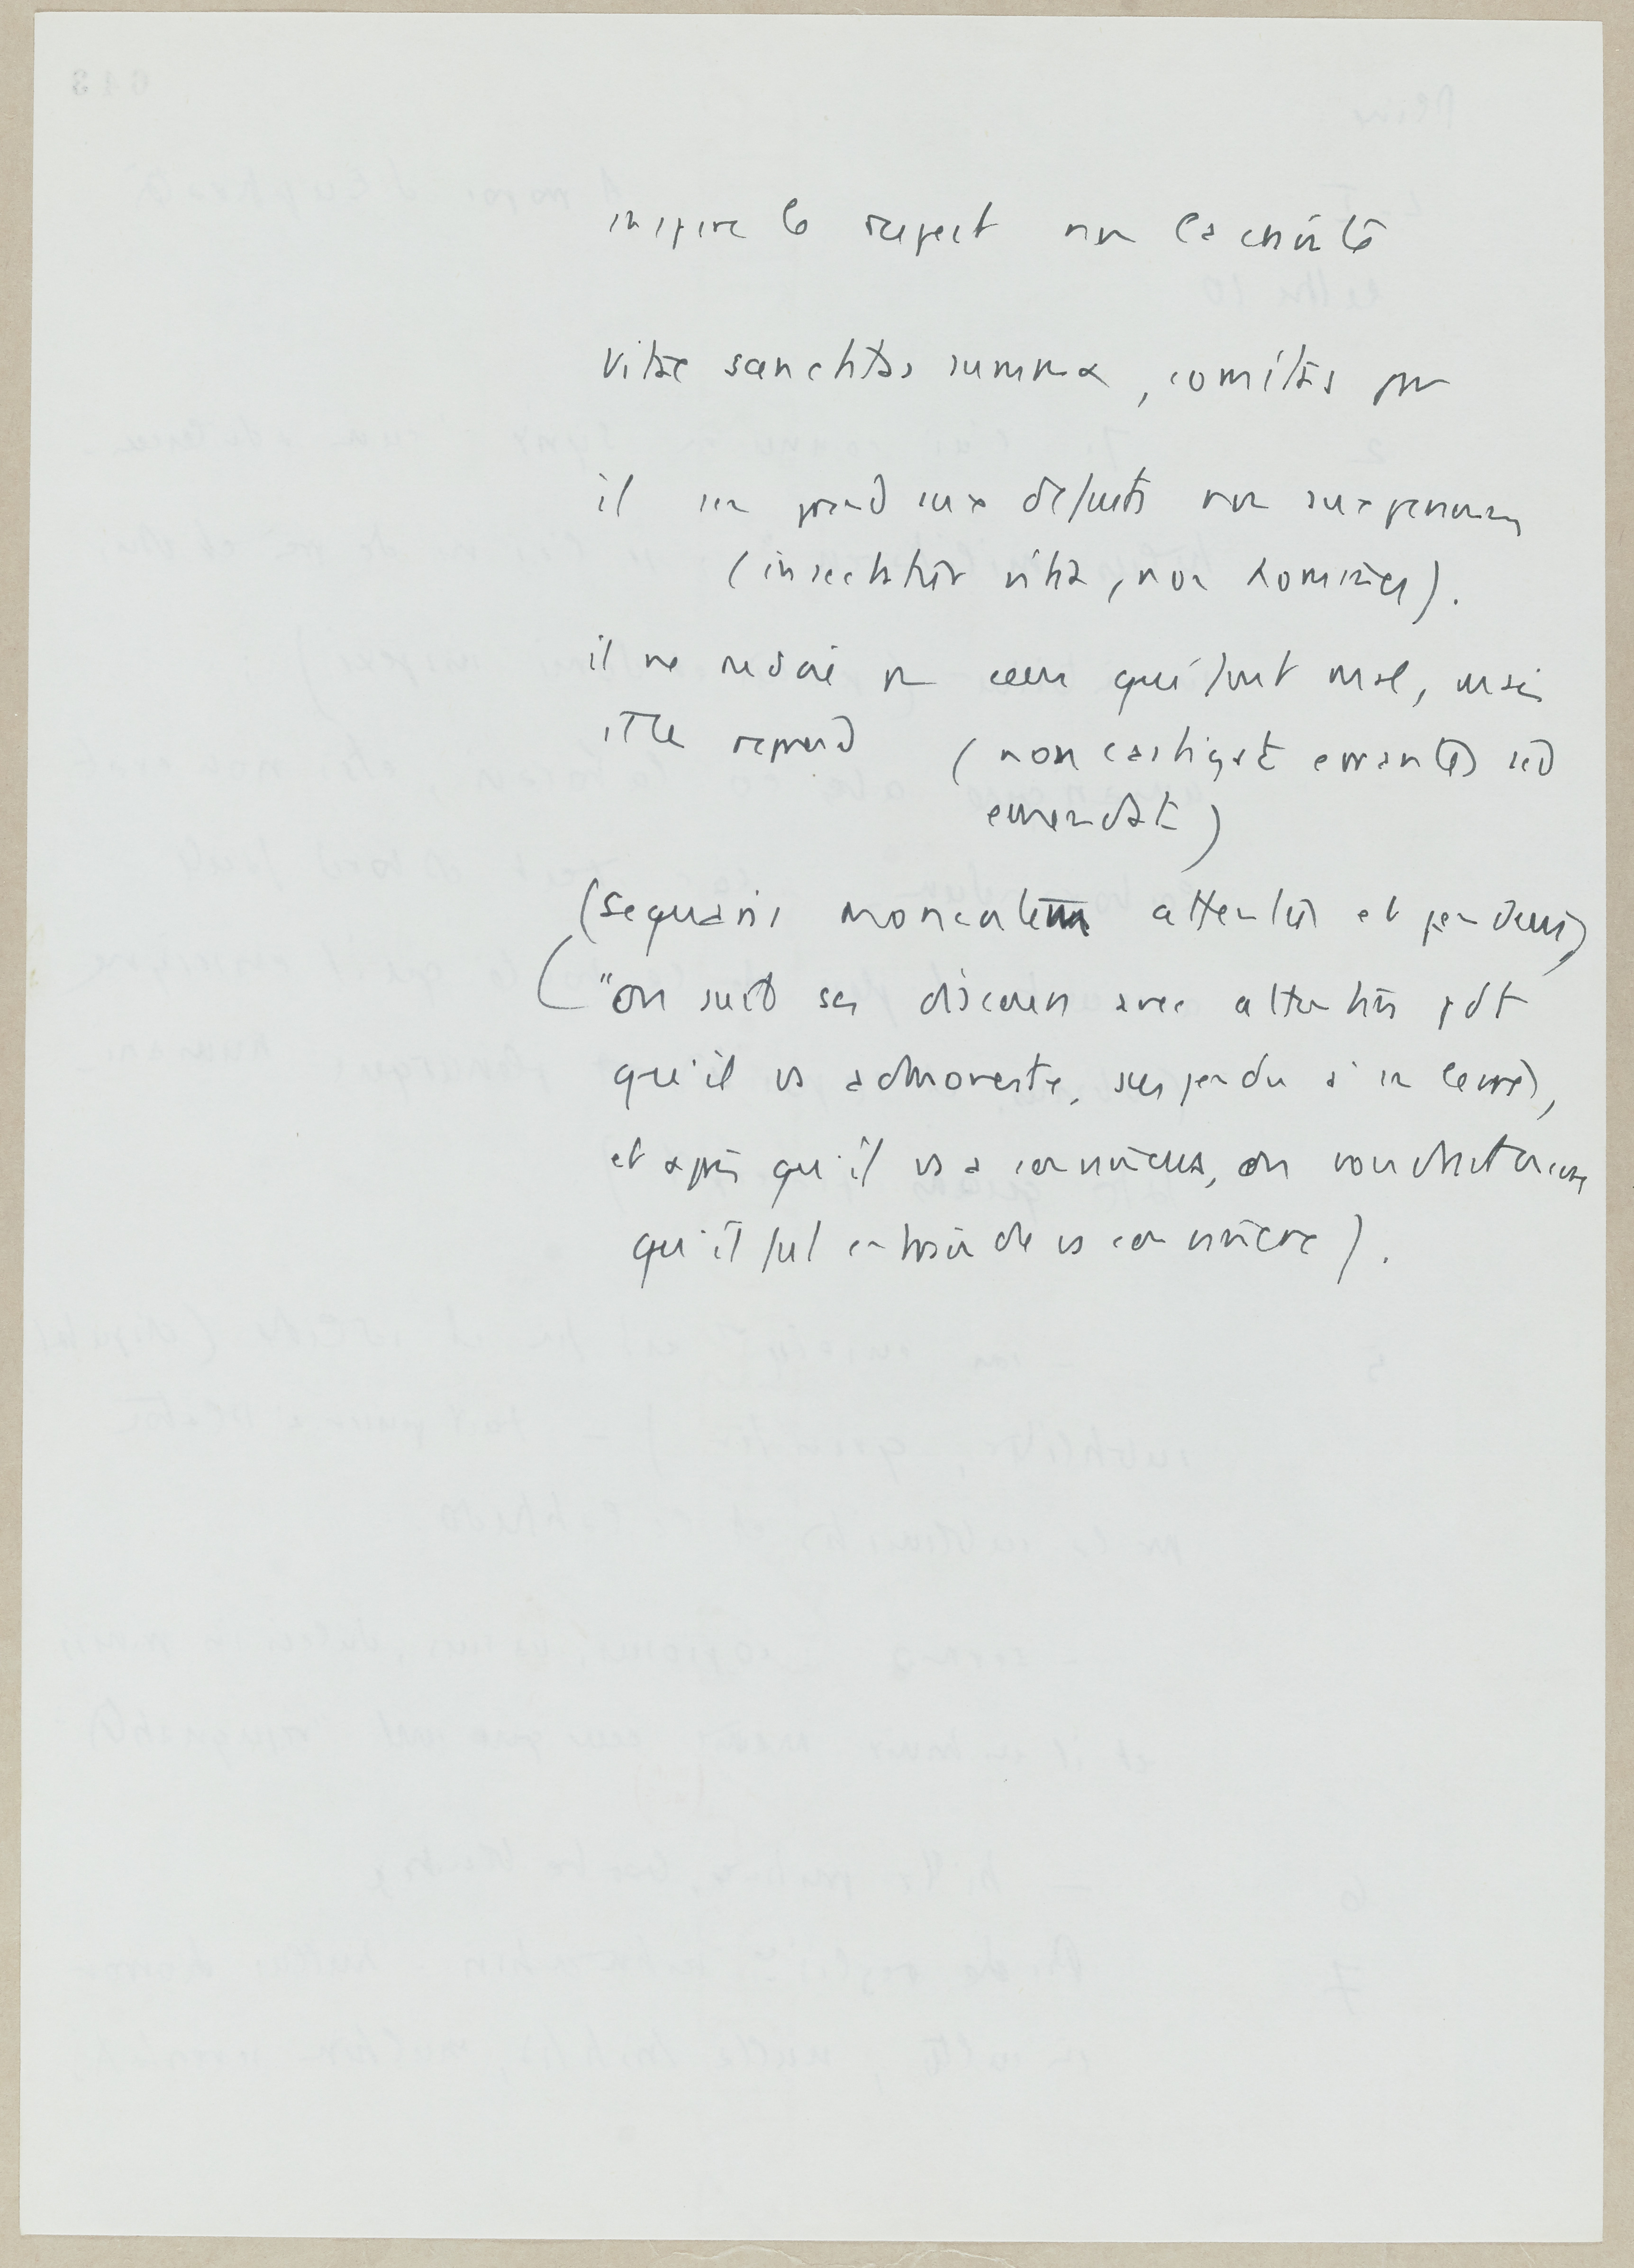 inspire le respect non la crainte
vitae sanctitas summa, comitas par
il s'en prend aux défauts non aux personnes
(insectatur vitia, non homines).
il ne rudoie pas ceux qui font mal, mais
il le reprend (non castigat errantes sed
emendat)
(sequaris monentem attentus et pendens)
("on suit ses discours avec attention pdt
qu'il vs admoneste, suspendu à ses lèvres,
et après qu'il vs a convaincus, on voudrait encore
qu'il fut en train de vs convaincre).